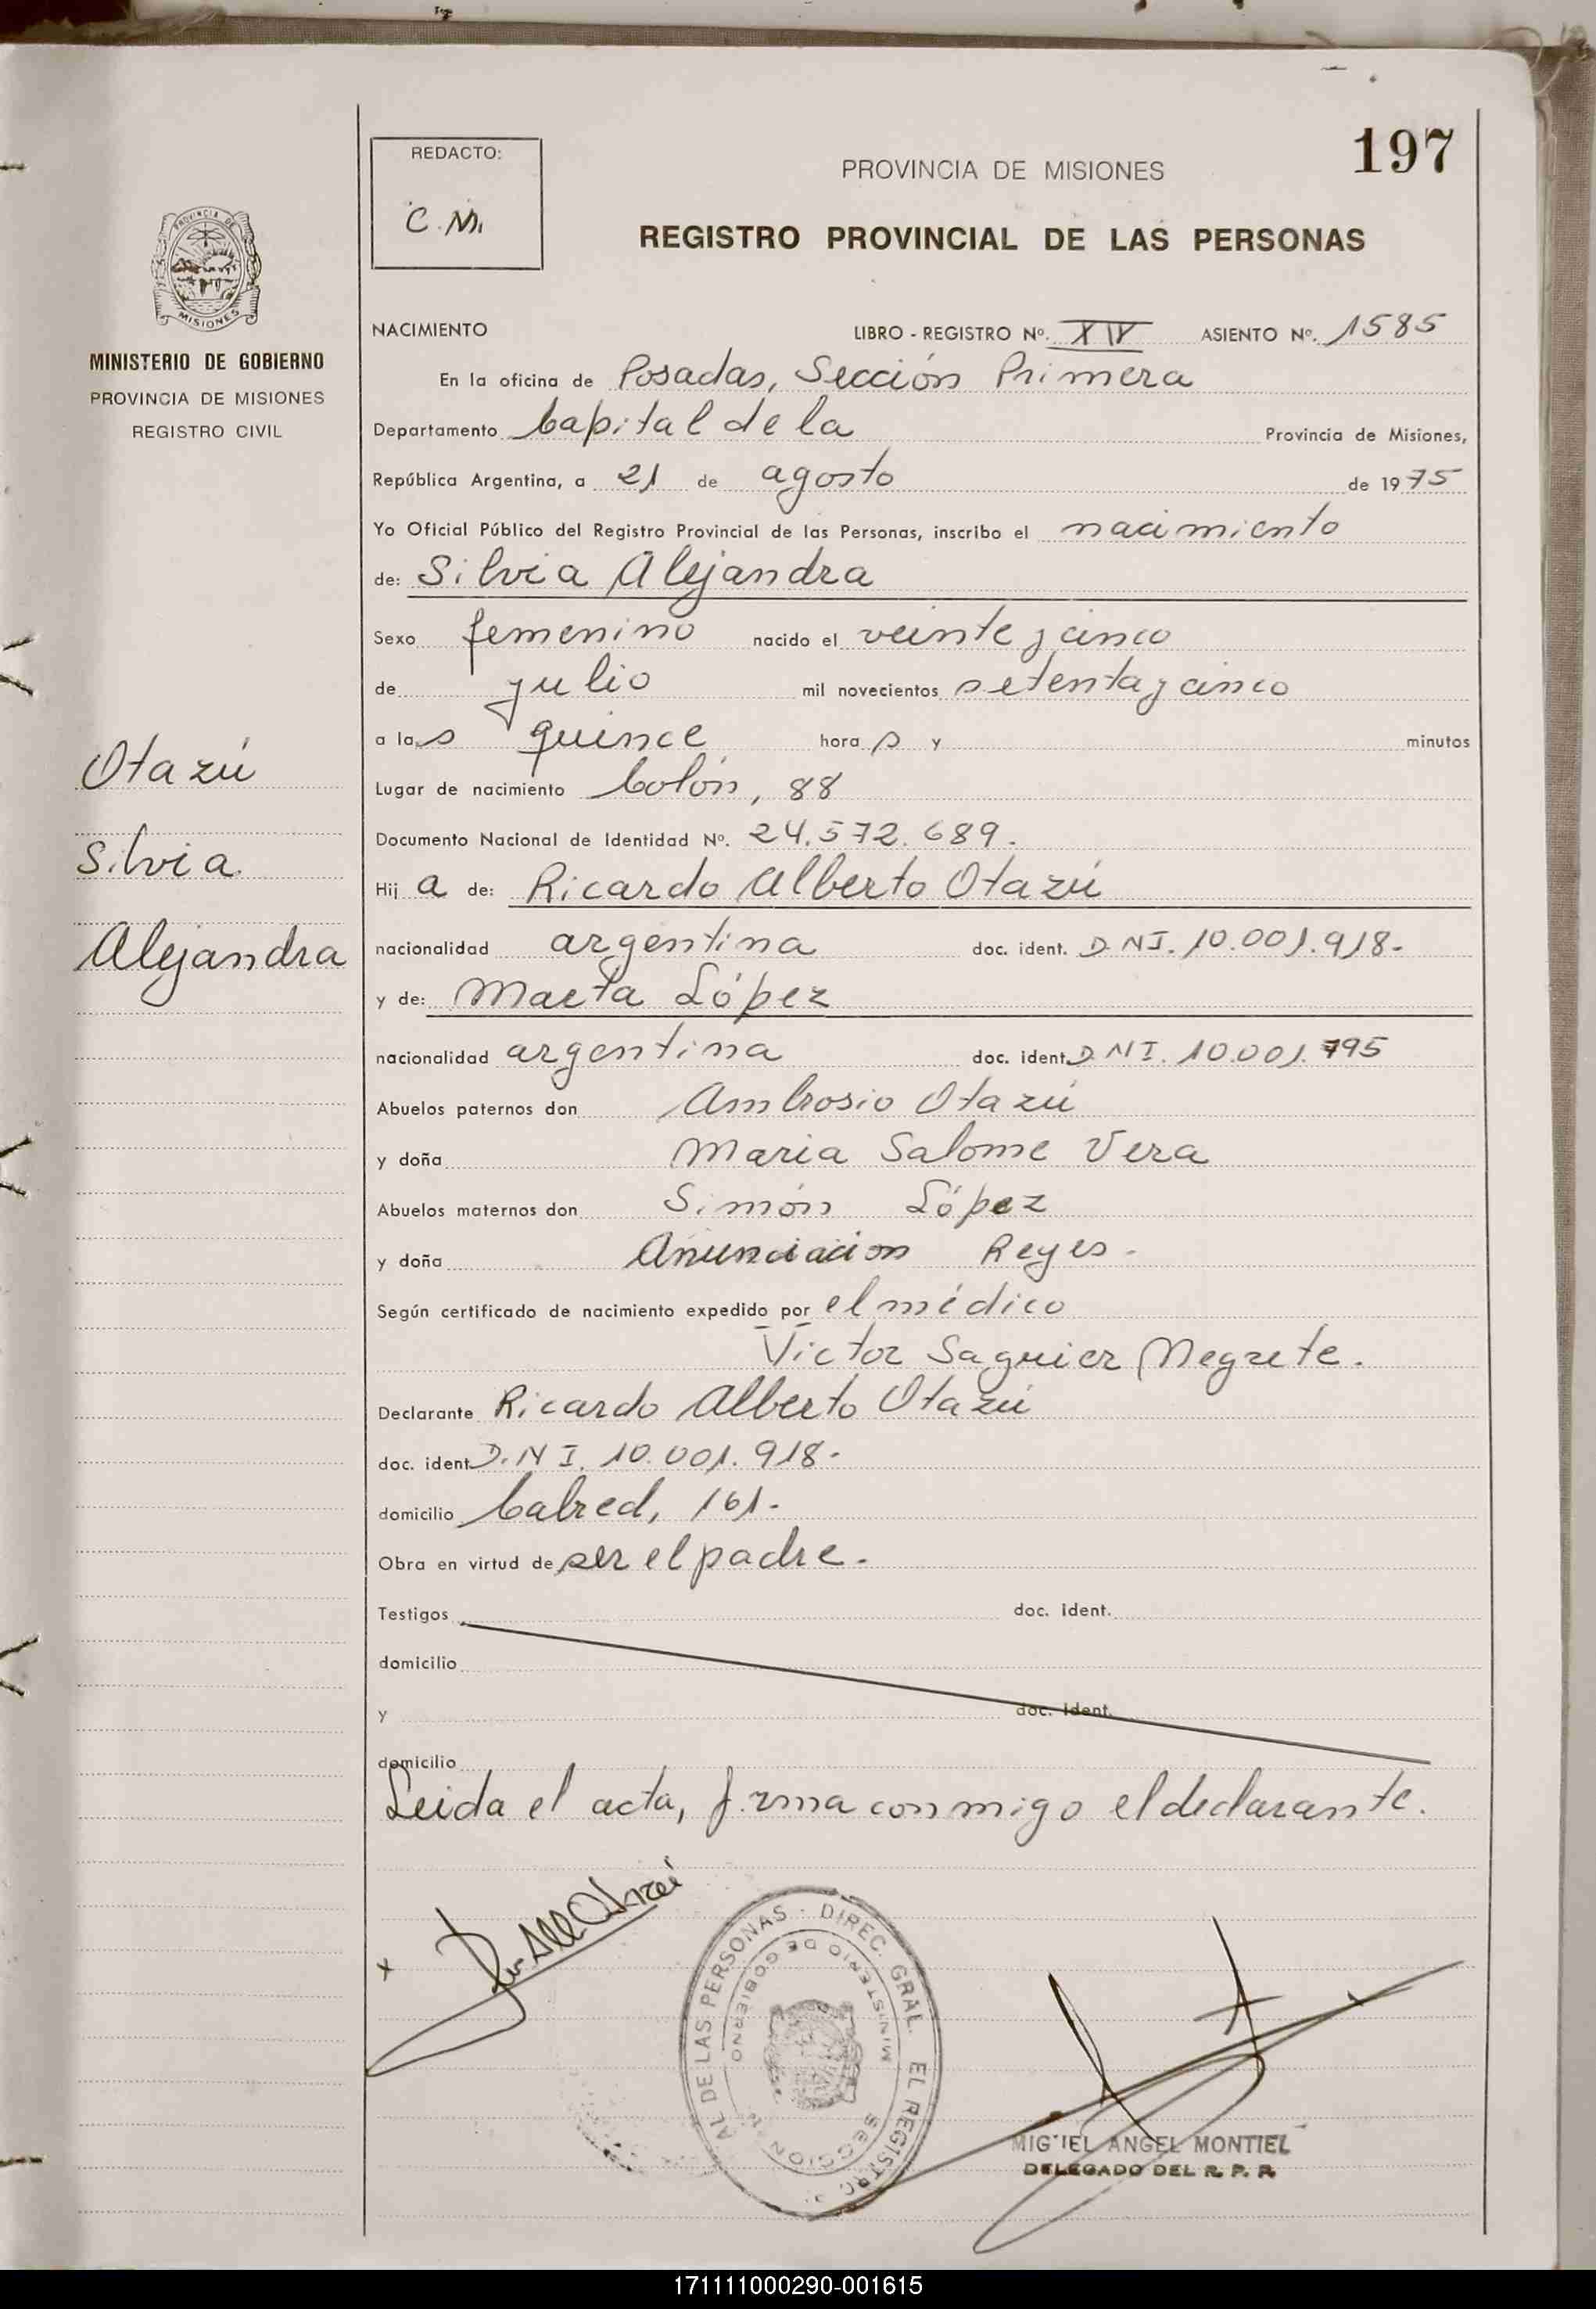 197
REDACTO:
C. M.
PROVINCIA DE MISIONES
REGISTRO PROVINCIAL DE LAS PERSONAS
PROVINCIA DE
MISIONES
MINISTERIO DE GOBIERNO
PROVINCIA DE MISIONES
REGISTRO CIVIL
Otazú
Silvia
Alejandra
NACIMIENTO LIBRO - REGISTRO Nº. XIV ASIENTO Nº. 1585
En la oficina de Posadas, Sección Primera
Departamento Capital de la Provincia de Misiones,
República Argentina, a 21 de agosto de 1975
Yo Oficial Público del Registro Provincial de las Personas, inscribo el nacimiento
de: Silvia Alejandra
Sexo femenino nacido el veinte y cinco
de julio mil novecientos setenta y cinco
a las quince horas y minutos
Lugar de nacimiento Colón, 88
Documento Nacional de Identidad Nº. 24.572.689.
Hija de: Ricardo Alberto Otazú
nacionalidad argentina doc. ident. D.N.I. 10.001.918-
y de: Marta López
nacionalidad argentina doc. ident. D.N.I. 10.001.795
Abuelos paternos don Ambrosio Otazú
y doña Maria Salome Vera
Abuelos maternos don Simón López
y doña Anunciacion Reyes -
Según certificado de nacimiento expedido por el médico
Victor Saguier Negrete.
Declarante Ricardo Alberto Otazú
doc. ident. D.N.I. 10.001.918-
domicilio Cabred, 161-
Obra en virtud de ser el padre.
Testigos doc. ident.
domicilio
y doc. ident.
domicilio
Leida el acta, firma conmigo el declarante.
x
AL DE LAS PERSONAS - DIREC. GRAL. EL REGISTRO
MINISTERIO DE GOBIERNO
SECCION
MIGUEL ANGEL MONTIEL
DELEGADO DEL R. P. P.
171111000290-001615